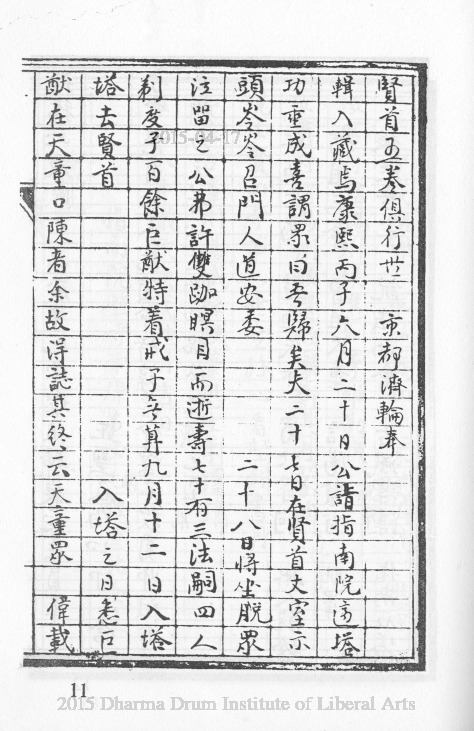 賢首五卷俱行世 京都濟輪奉
輯入藏焉康熙丙子六月二十日公詣指南院過塔
功垂成喜謂眾曰吾歸矣夫二十七日在賢首丈室示
頭岑岑召門人道安委 二十八日將坐脫眾
泣留之公弗許雙跏瞑目而逝壽七十有三法嗣四人
剃度子百餘巨猷特着戒子無算九月十二日入塔
塔去賢首 入塔之日悉巨
猷在天童口陳者余故得誌其終云天童眾 偉載
2015-04-17
11
2015 Dharma Drum Institute of Liberal Arts